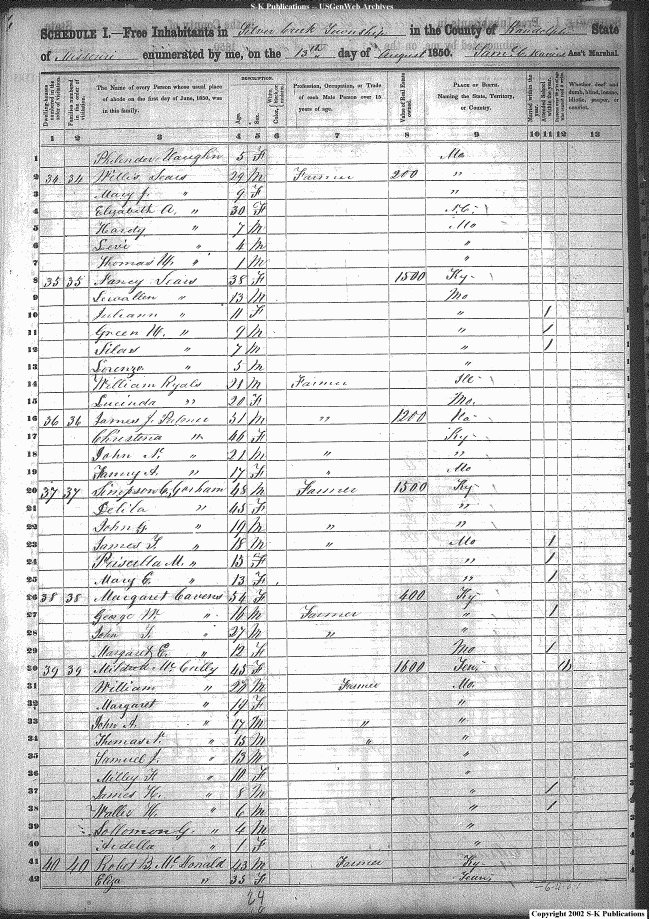 S-K Publications -- USGenWeb Archives
SCHEDULE I.--Free Inhabitants in Silver Creek Township in the County of Randolph State
of Missouri enumerated by me, on the 13th day of August 1850. Ass't Marshal.
Dwelling-houses numbered in the order of visitation.
Families numbered in the order of visitation.
The Name of every Person whose usual place of abode on the first day of June, 1850, was in this family.
DESCRIPTION.
Age.
Sex.
Profession, Occupation, or Trade of each Male Person over 15 years of age.
Value of Real Estate owned.
PLACE OF BIRTH.
Naming the State, Territory, or Country.
Whether deaf and dumb, blind, insane, idiotic, pauper, or convict.
1 2 3 4 5 6 7 8 9 10 11 12 13
1 Vaughn 5 F Mo
2 34 34 Willis Sears 29 M Farmer 200 "
3 Mary J. " 9 F "
4 Elizabeth A. " 30 F N.C.
5 Hardy " 7 M Mo
6 Levi " 4 M "
7 Thomas W. " 1 M "
8 35 35 Nancy Sears 38 F 1500 Ky
9 Lewallen " 13 M Mo
10 Juliann " 11 F " 1
11 Green W. " 9 M " 1
12 Silas " 7 M " 1
13 Lorenzo " 5 M "
14 William Ryals 21 M Farmer
15 Lucinda " 20 F Mo.
16 36 36 James J. 51 M " 1200
17 Christena " 46 F Ky
18 John N. " 21 M " "
19 Fanny A. " 17 F " Mo
20 37 37 Simpson C. Gorham 48 M Farmer 1500 Ky
21 Delila " 45 F "
22 John G. " 19 M " "
23 James T. " 18 M " Mo 1
24 Priscilla M. " 15 F " 1
25 Mary E. " 13 F " 1
26 38 38 Margaret Cavens 54 F 400 Ky
27 George W. " 16 M Farmer " 1
28 John T. " 27 M " "
29 Margaret E. " 12 F Mo 1
30 39 39 Mc Cully 45 F 1600 Ten 1
31 William " 22 M Farmer Mo.
32 Margaret " 19 F "
33 John A. " 17 M " "
34 Thomas N. " 15 M " "
35 Samuel J. " 13 M "
36 Milley " 10 F "
37 James H. " 8 M " 1
38 " 6 M " 1
39 Sollomon G. " 4 M "
40 Ardella " 1 F "
41 40 40 Robert B. Mc Donald 43 M Farmer Ky
42 Eliza " 35 F Tenn
Copyright 2002 S-K Publications